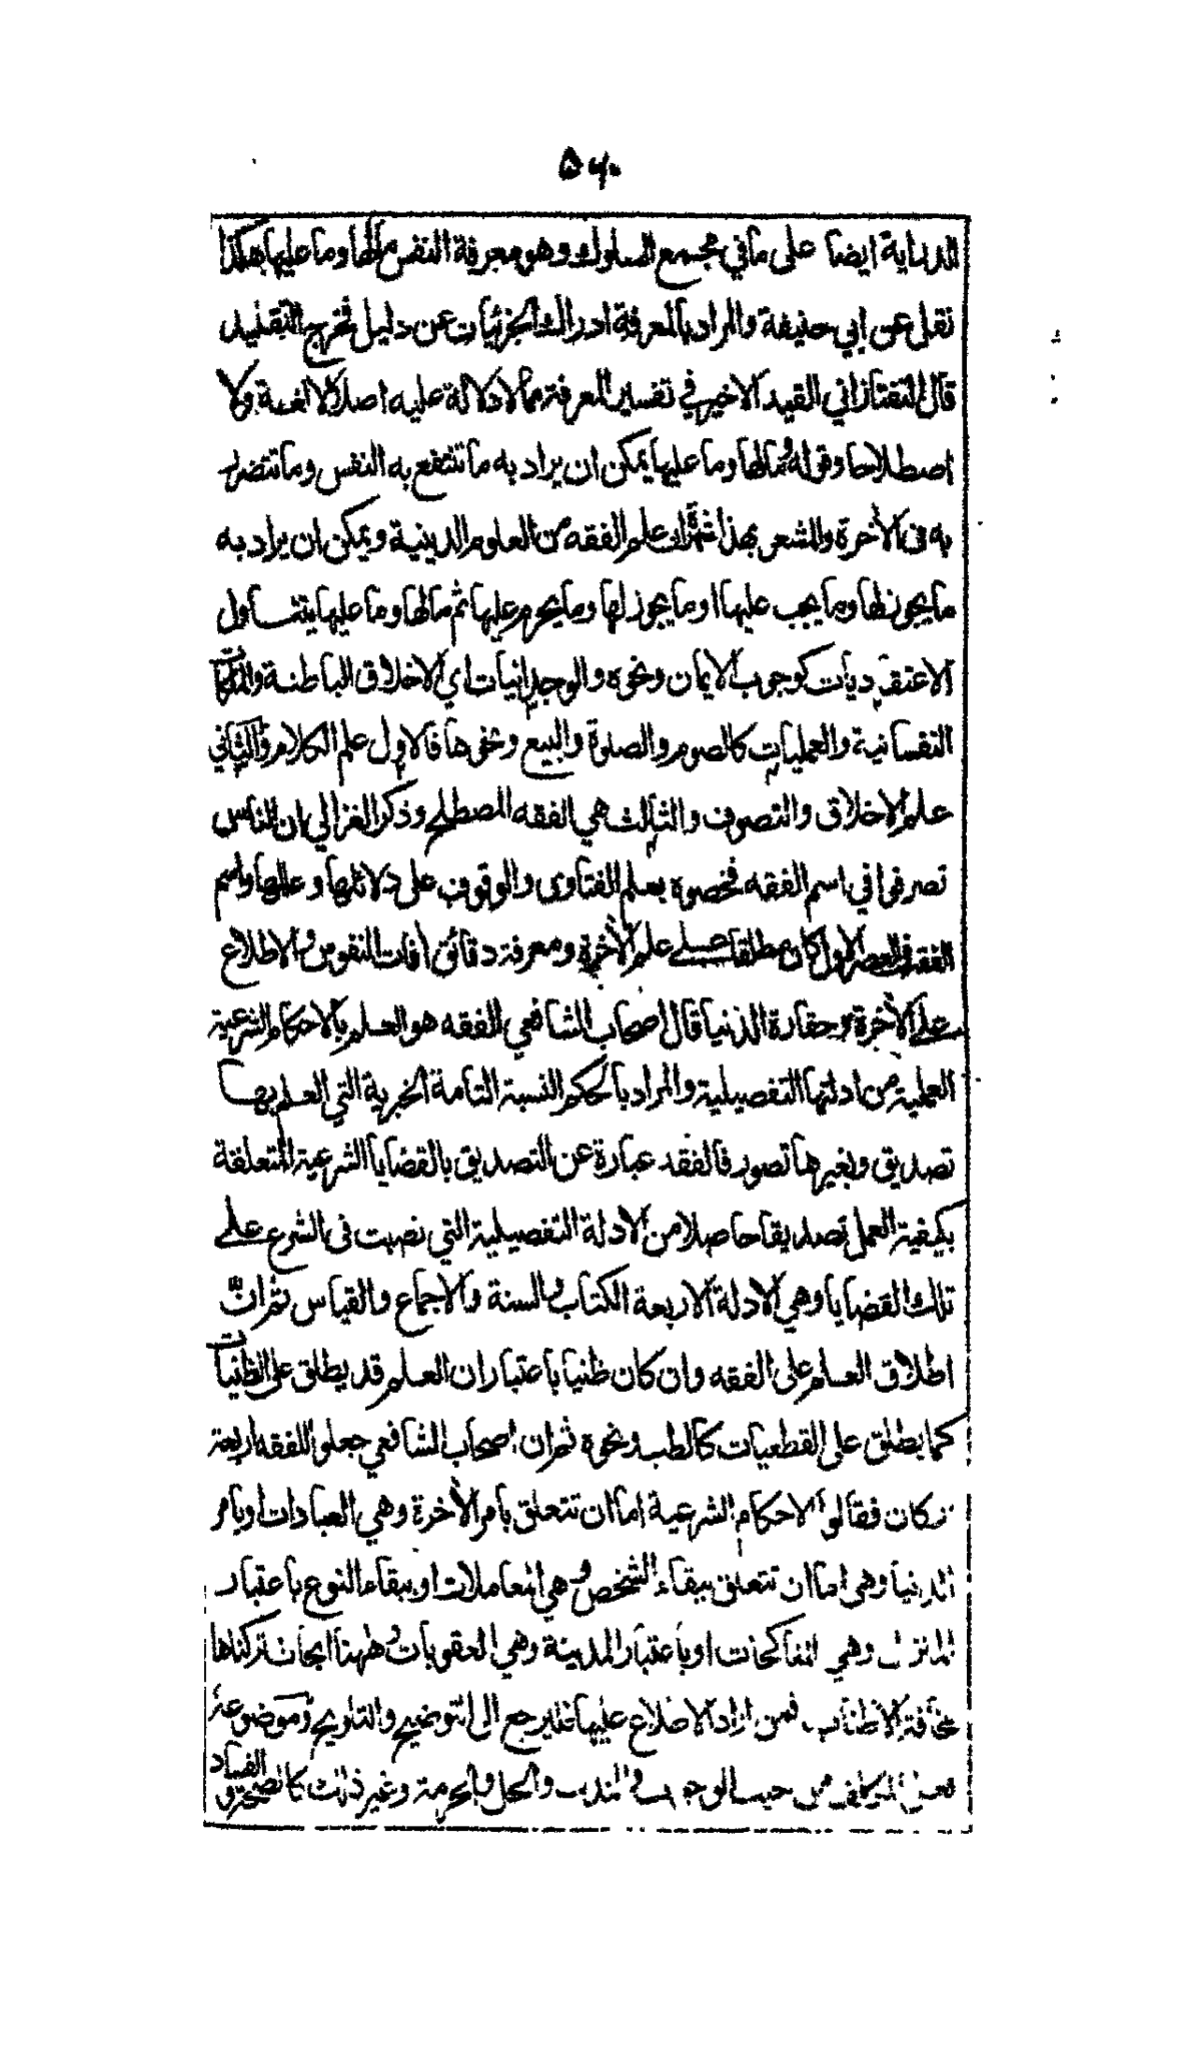 ۵۶۰
الدراية ايضا على ما في مجمع السلوك وهو معرفة النفس ما لها وما عليها هكذا
نقل عن ابي حنيفة والمراد بالمعرفة ادراك الجزئيات عن دليل فخرج التقليد
قال التفتازاني القيد الاخير في تفسير المعرفة مما لا دلالة عليه اصلا لا لغة ولا
اصطلاحا وقوله ما لها وما عليها يمكن ان يراد به ما تنتفع به النفس وما تتضرر
به في الآخرة والمشعر بهذا علم الفقه من العلوم الدينية ويمكن ان يراد به
ما يجوز لها وما يجب عليها او ما يجوز لها وما يحرم عليها ثم ما لها وما عليها يتناول
الاعتقاديات كوجوب الايمان ونحوه والوجدانيات اي الاخلاق الباطنة والملكات
النفسانية والعمليات كالصوم والصلوة والبيع ونحوها فالاول علم الكلام والثاني
علم الاخلاق والتصوف والثالث هي الفقه المصطلح وذكر الغزالي ان الناس
تصرفوا في اسم الفقه فخصوه بعلم الفتاوى والوقوف على دلائلها وعللها واسم
الفقه في العصر الاول كان مطلقا على علم الآخرة ومعرفة دقائق آفات النفوس والاطلاع
على الآخرة وحقارة الدنيا قال اصحاب الشافعي الفقه هو العلم بالاحكام الشرعية
العملية من ادلتها التفصيلية والمراد بالحكم النسبة التامة الخبرية التي العلم بها
تصديق وبغيرها تصور فالفقه عبارة عن التصديق بالقضايا الشرعية المتعلقة
بكيفية العمل تصديقا حاصلا من الادلة التفصيلية التي نصبت في الشرع على
تلك القضايا وهي الادلة الاربعة الكتاب والسنة والاجماع والقياس ثم ان
اطلاق العلم على الفقه وان كان ظنيا باعتبار ان العلم قد يطلق على الظنيات
كما يطلق على القطعيات كالطب ونحوه ثم ان اصحاب الشافعي جعلوا للفقه اربعة
اركان فقالوا الاحكام الشرعية اما ان تتعلق بامر الآخرة وهي العبادات او بامر
الدنيا وهي اما ان تتعلق ببقاء الشخص وهي المعاملات او ببقاء النوع باعتبار
المنزل وهي المناكحات او باعتبار المدينة وهي العقوبات وههنا ابحاث تركناها
مخافة الاطناب فمن اراد الاطلاع عليها فليرجع الى التوضيح والتلويح وموضوعه
فعل المكلف من حيث الوجوب والندب والحل والحرمة وغير ذلك كالصحة والفساد